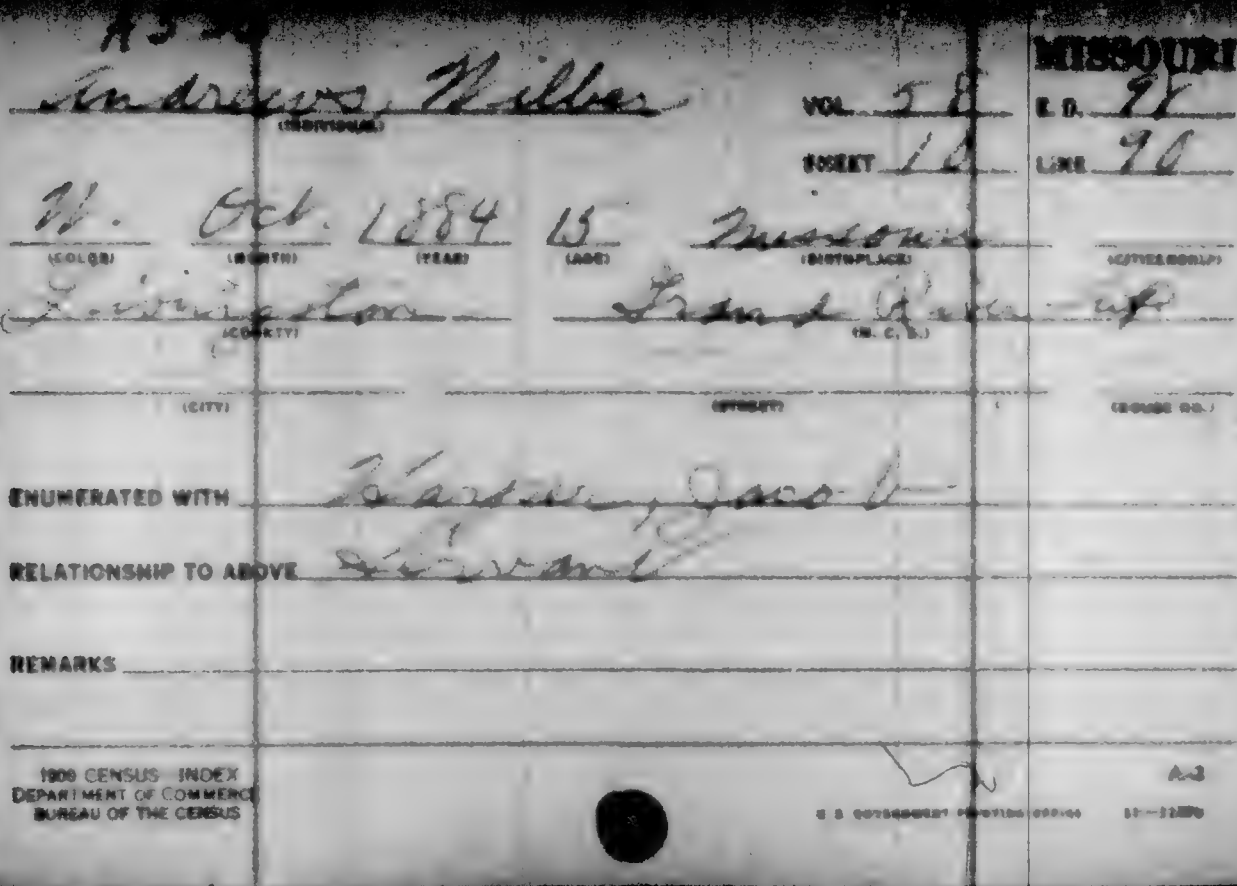 MISSOURI
Andrews, Wilber VOL. 58 E. D. 98
(INDIVIDUAL)
SHEET 10 LINE 90
W. Oct. 1884 15 Missouri
(COLOR) (MONTH) (YEAR) (AGE) (BIRTHPLACE) (CITIZENSHIP)
Livingston Grand River
(COUNTY) (M. C. D.)
(CITY) (STREET) (HOUSE NO.)
ENUMERATED WITH Jacob
RELATIONSHIP TO ABOVE Servant
REMARKS
1900 CENSUS INDEX
DEPARTMENT OF COMMERCE A-3
BUREAU OF THE CENSUS U S GOVERNMENT PRINTING OFFICE